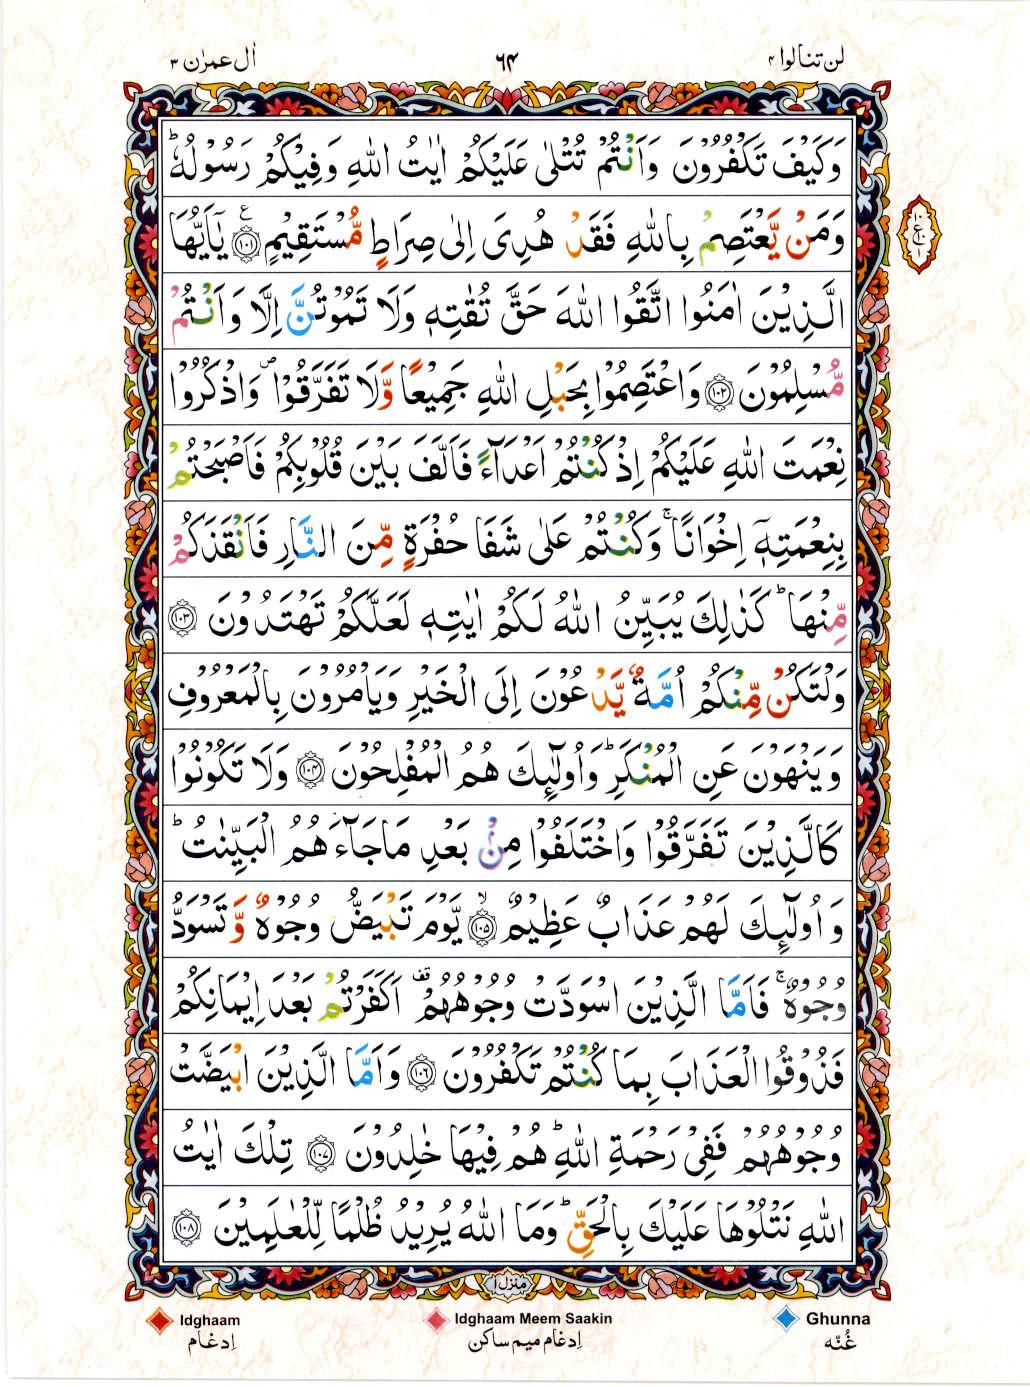 لن تنالوا ۴
٦۴
اٰل عمرٰن ۳
وَكَيْفَ تَكْفُرُوْنَ وَاَنْتُمْ تُتْلٰى عَلَيْكُمْ اٰيٰتُ اللّٰهِ وَفِيْكُمْ رَسُوْلُهٗ ؕ
وَمَنْ يَّعْتَصِمْ بِاللّٰهِ فَقَدْ هُدِىَ اِلٰى صِرَاطٍ مُّسْتَقِيْمٍ ﴿۱۰۱﴾ ع يٰۤاَيُّهَا
الَّذِيْنَ اٰمَنُوا اتَّقُوا اللّٰهَ حَقَّ تُقٰتِهٖ وَلَا تَمُوْتُنَّ اِلَّا وَاَنْتُمْ
مُّسْلِمُوْنَ ﴿۱۰۲﴾ وَاعْتَصِمُوْا بِحَبْلِ اللّٰهِ جَمِيْعًا وَّلَا تَفَرَّقُوْا ۖ وَاذْكُرُوْا
نِعْمَتَ اللّٰهِ عَلَيْكُمْ اِذْ كُنْتُمْ اَعْدَآءً فَاَلَّفَ بَيْنَ قُلُوْبِكُمْ فَاَصْبَحْتُمْ
بِنِعْمَتِهٖۤ اِخْوَانًا ۚ وَكُنْتُمْ عَلٰى شَفَا حُفْرَةٍ مِّنَ النَّارِ فَاَنْقَذَكُمْ
مِّنْهَا ؕ كَذٰلِكَ يُبَيِّنُ اللّٰهُ لَكُمْ اٰيٰتِهٖ لَعَلَّكُمْ تَهْتَدُوْنَ ﴿۱۰۳﴾
وَلْتَكُنْ مِّنْكُمْ اُمَّةٌ يَّدْعُوْنَ اِلَى الْخَيْرِ وَيَاْمُرُوْنَ بِالْمَعْرُوْفِ
وَيَنْهَوْنَ عَنِ الْمُنْكَرِ ؕ وَاُولٰٓئِكَ هُمُ الْمُفْلِحُوْنَ ﴿۱۰۴﴾ وَلَا تَكُوْنُوْا
كَالَّذِيْنَ تَفَرَّقُوْا وَاخْتَلَفُوْا مِنْۢ بَعْدِ مَا جَآءَهُمُ الْبَيِّنٰتُ ؕ
وَاُولٰٓئِكَ لَهُمْ عَذَابٌ عَظِيْمٌ ﴿۱۰۵﴾ ۙ يَّوْمَ تَبْيَضُّ وُجُوْهٌ وَّتَسْوَدُّ
وُجُوْهٌ ۚ فَاَمَّا الَّذِيْنَ اسْوَدَّتْ وُجُوْهُهُمْ قف اَكَفَرْتُمْ بَعْدَ اِيْمَانِكُمْ
فَذُوْقُوا الْعَذَابَ بِمَا كُنْتُمْ تَكْفُرُوْنَ ﴿۱۰۶﴾ وَاَمَّا الَّذِيْنَ ابْيَضَّتْ
وُجُوْهُهُمْ فَفِىْ رَحْمَةِ اللّٰهِ ؕ هُمْ فِيْهَا خٰلِدُوْنَ ﴿۱۰۷﴾ تِلْكَ اٰيٰتُ
اللّٰهِ نَتْلُوْهَا عَلَيْكَ بِالْحَقِّ ؕ وَمَا اللّٰهُ يُرِيْدُ ظُلْمًا لِّلْعٰلَمِيْنَ ﴿۱۰۸﴾
منزل ۱
Idghaam
Idghaam Meem Saakin
Ghunna
اِدغام
اِدغام میم ساکن
غُنّه